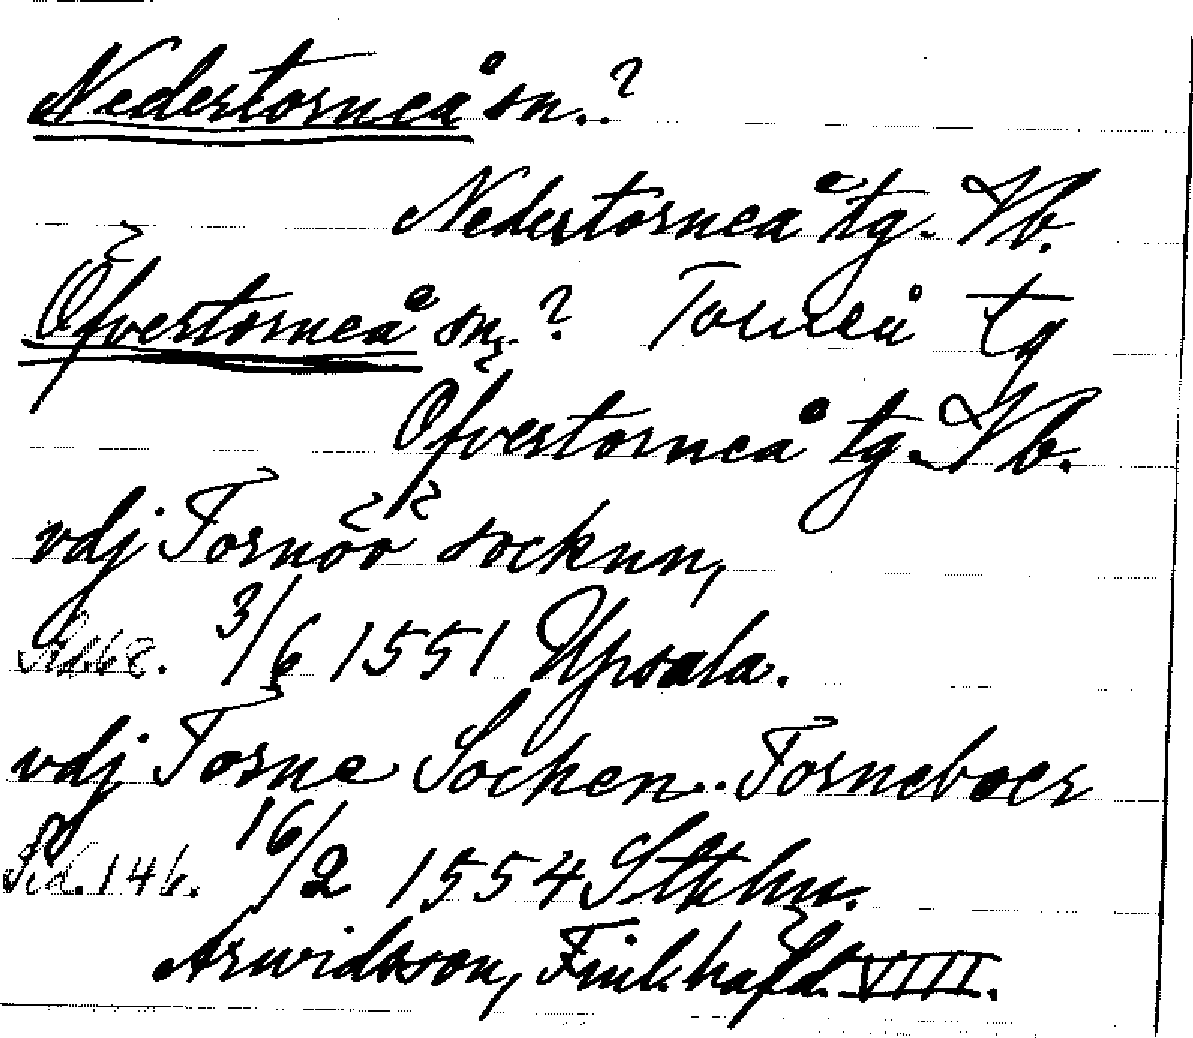 Nedertorneå sn.?
Nedertorneå tg. Vb.
Öfvertorneå sn.? Torneå tg
Öfvertorneå tg. Vb.
vdj Tornöö socknn,
3/6 1551 Upsala.
vdj Torne Socken.. Torneboer
Sid. 146. 16/2 1554 Stkhm.
Arwidsson, Finl. häfd. VIII.